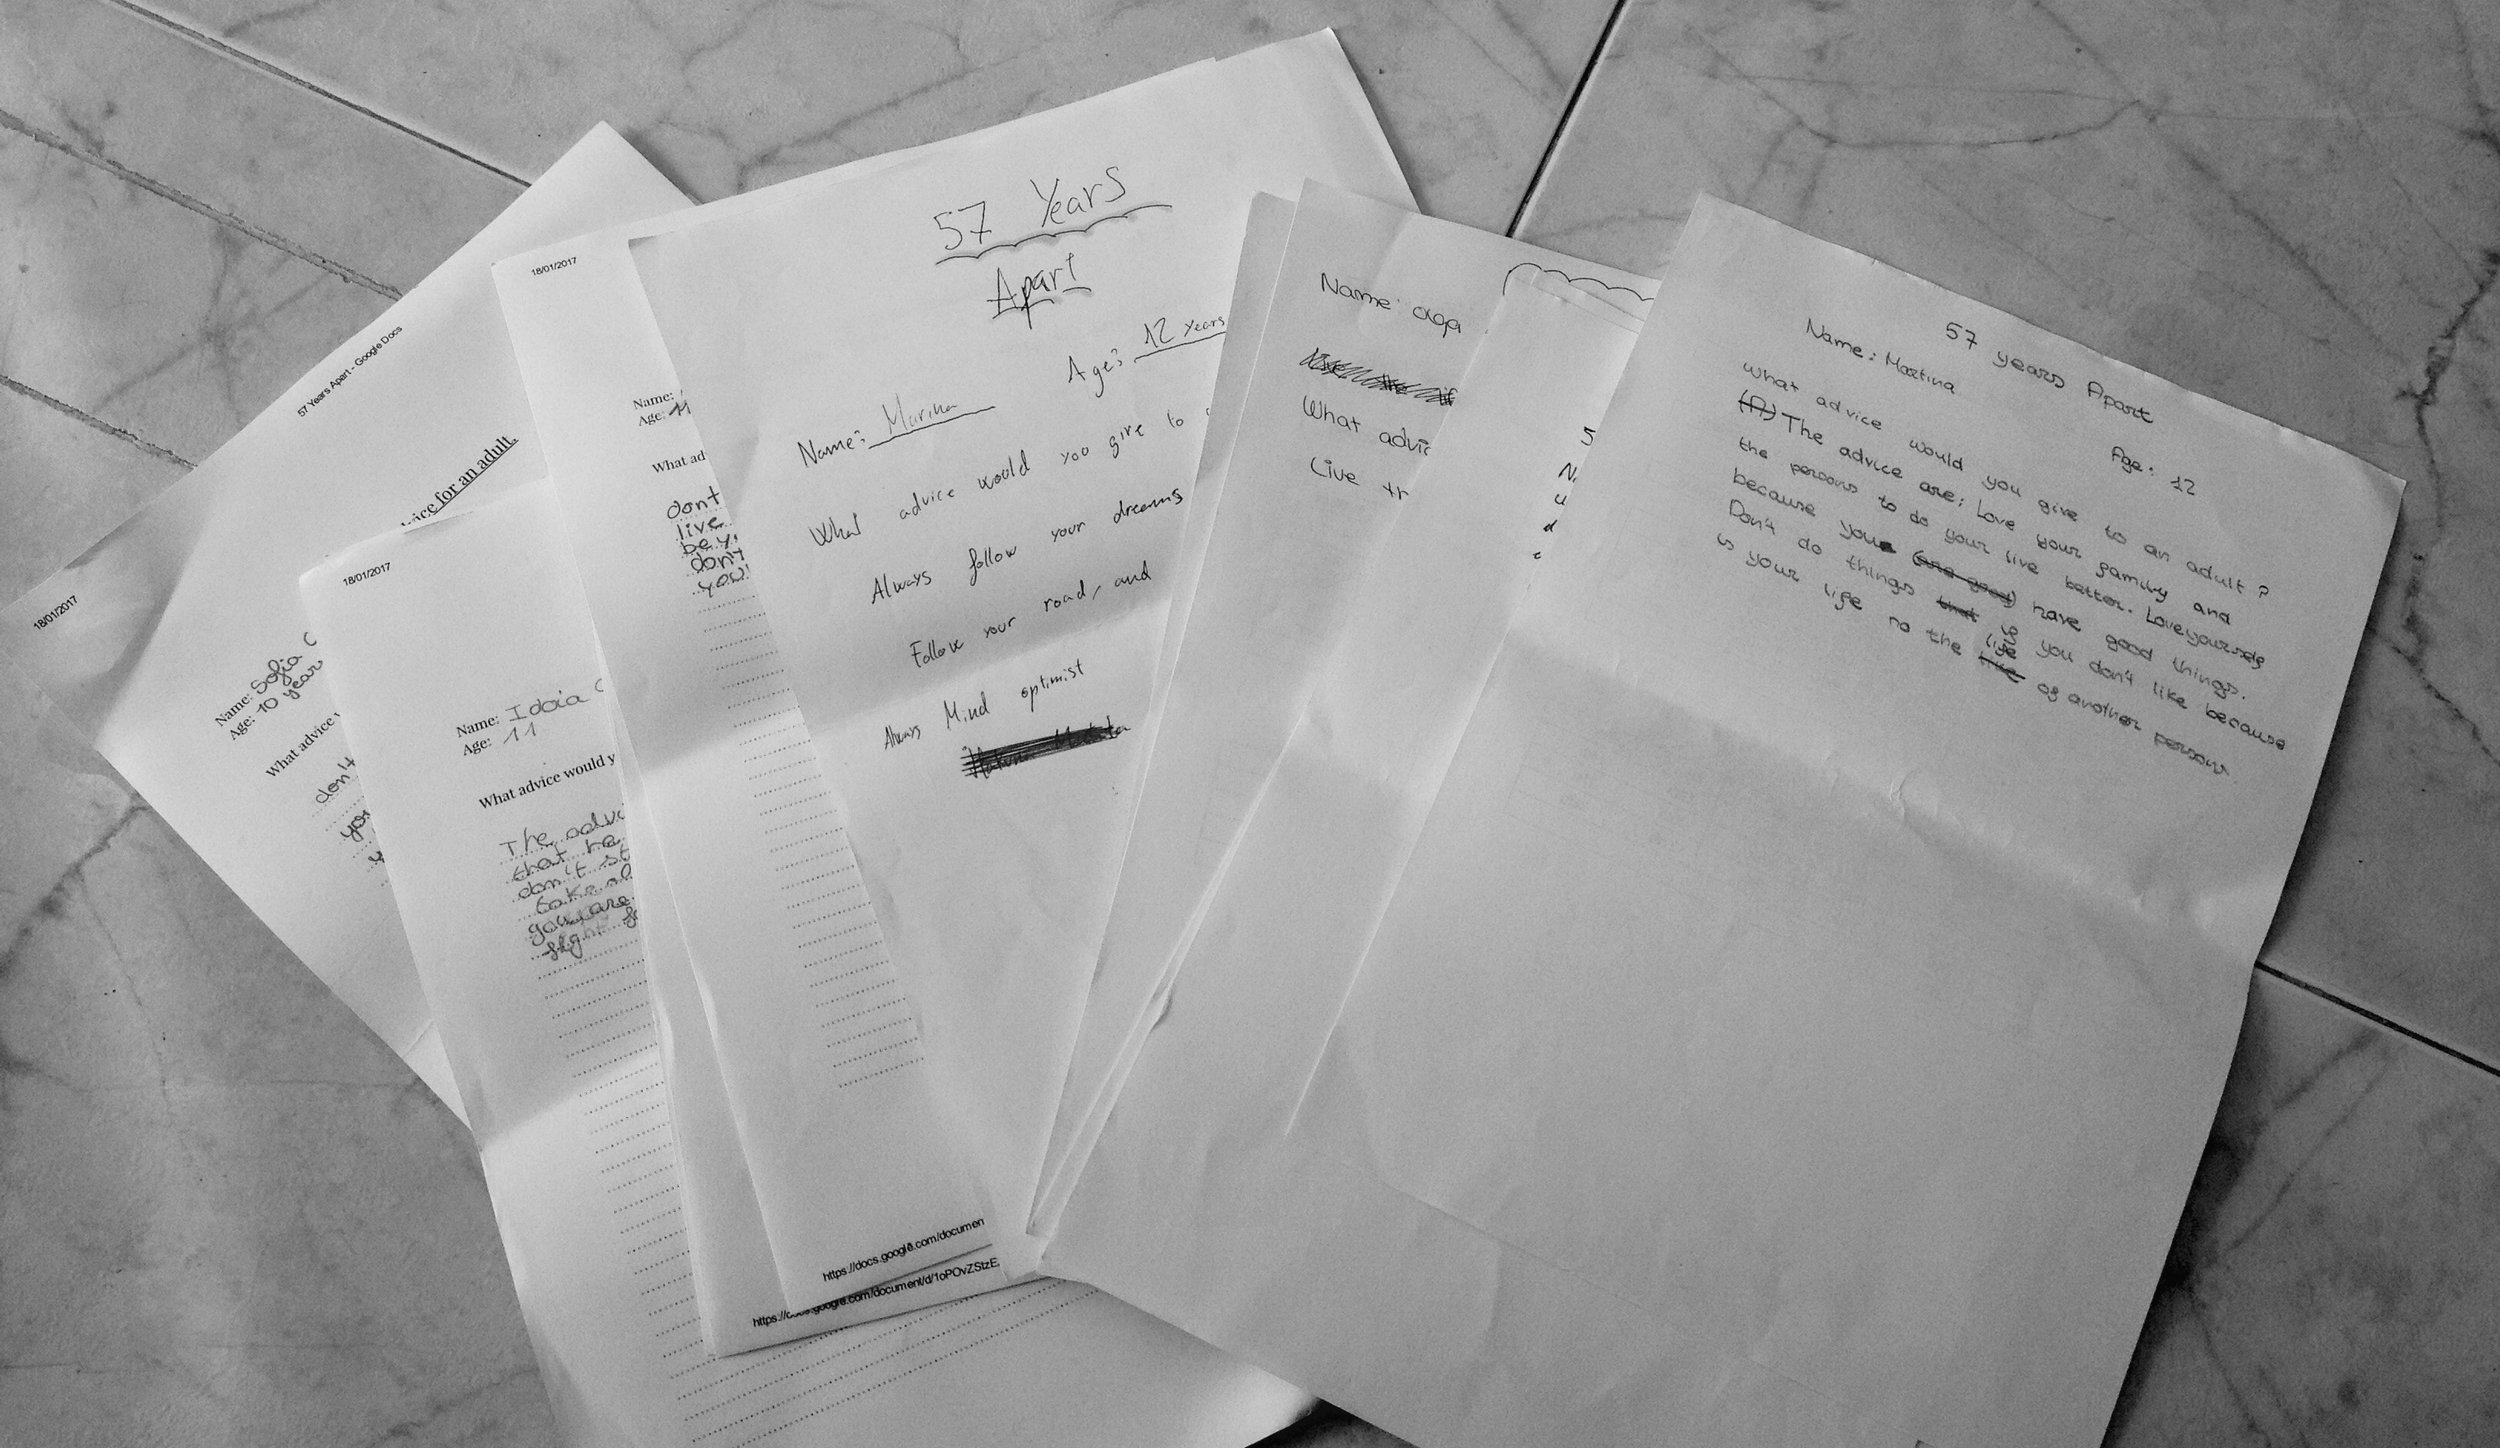 18/01/2017
57 Years Apart - Google Docs
vice for an adult.
Name: Sofia
Age: 10 year
What advice
don't
you
18/01/2017
Name: Idoia
Age: 11
What advice would y
The advi
that he
don't st
you are
18/01/2017
Name:
Age: 11
What ad
dont
live
be y
don't
you
https://docs.google.com/documen
https://docs.google.com/document/d/1oPOvZStzE
57 Years
Apart
Age: 12 years
Name: Marina
What advice would you give to
Always follow your dreams
Follow your road, and
Always Mind optimist
Name:
What advic
Live tr
5
N
u
d
57 years Apart
Name: Martina
Age: 12
What advice would you give to an adult?
(A) The advice are: Love your family and
the persons to do your live better. Love yourself
because you (are good) have good things.
Don't do things that if you don't like because
is your life no the life of another person